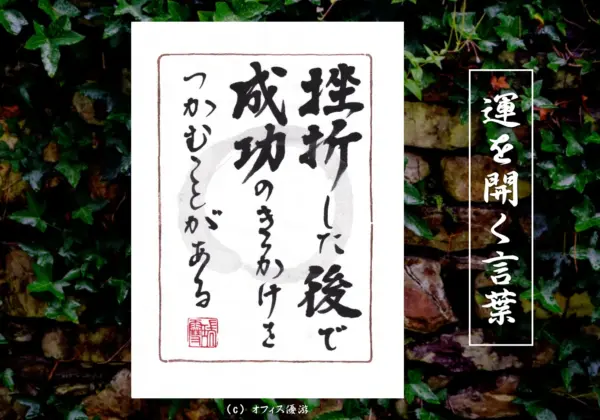 運を開く言葉
挫折した後で
成功のきっかけを
つかむことがある
(c) オフィス優游